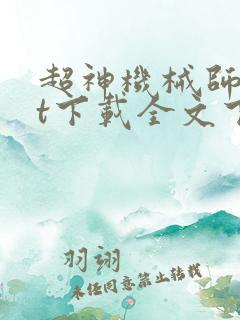 超神機械師
t下載全文下
羽翊
未经同意禁止转载